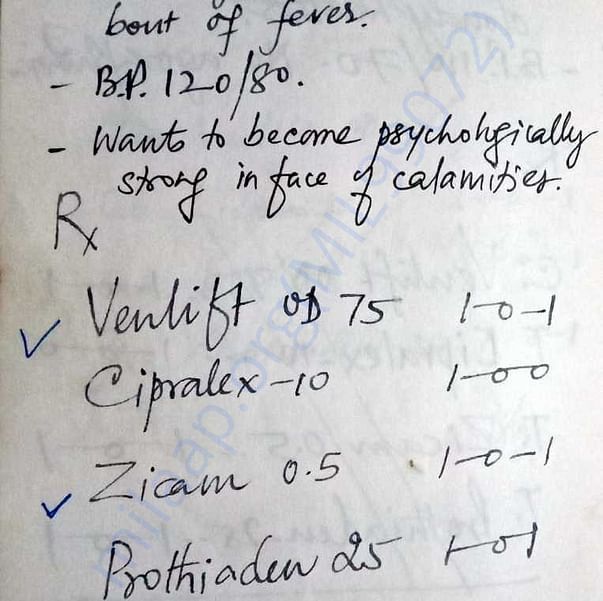 bout of fever.
- B.P. 120/80.
- Wants to become psychologically
strong in face of calamities.
Rx
Venlift OD 75 1-0-1
Cipralex-10 1-0-0
Zicam 0.5 1-0-1
Prothiaden 25 1-0-1
milaap.org